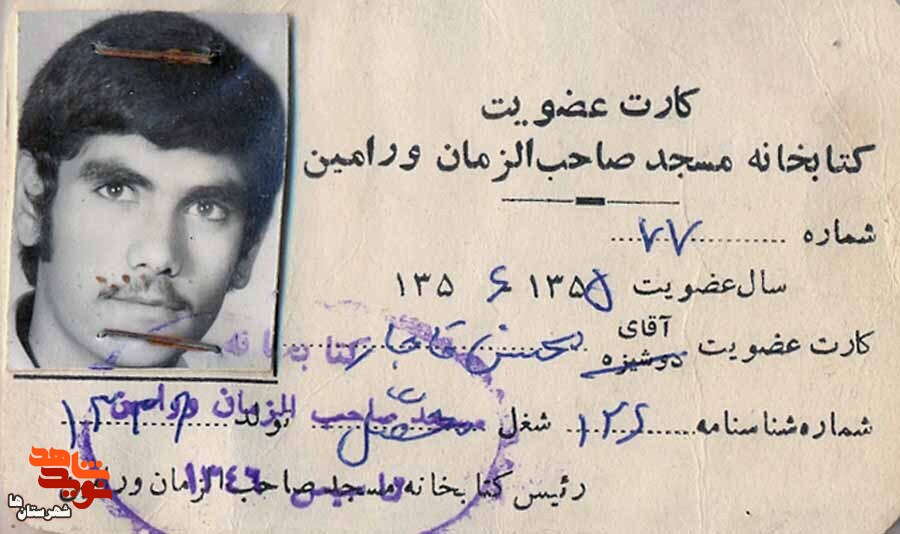 کارت عضویت
کتابخانه مسجد صاحب‌الزمان ورامین
شماره ۷۷
سال عضویت ۱۳۵۵ ۱۳۵۶
کارت عضویت آقای دوشیزه محسن قاجار
شماره شناسنامه ۱۲۶ شغل محصل تولد ۱۳۳۷
رئیس کتابخانه مسجد صاحب‌الزمان ورامین
کتابخانه
مسجد صاحب الزمان ورامین
تاسیس ۱۳۴۶
نوید شاهد
شهرستان‌ها